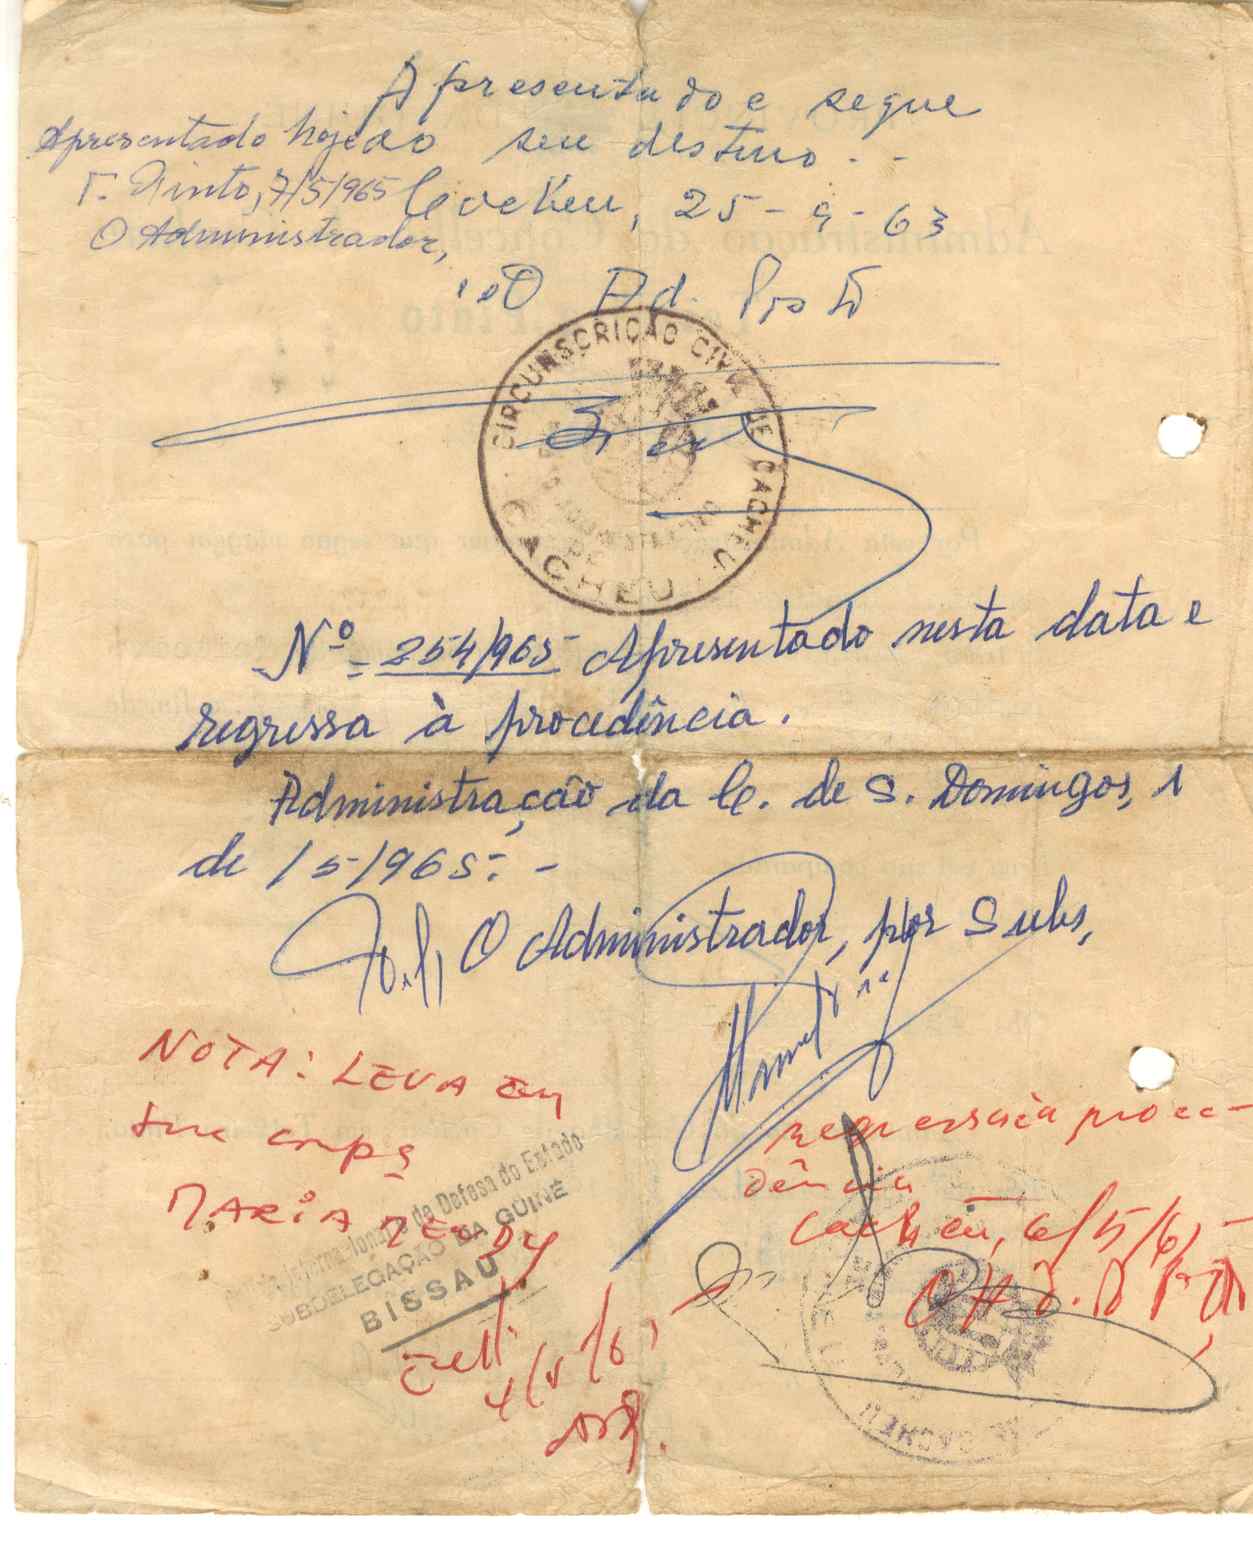 Apresentado e segue
ao seu destino..
Cacheu, 25-9-63
O Ad. Posto
Apresentado hoje
T. Pinto, 7/5/1965
O Administrador,
CIRCUNSCRIÇÃO CIVIL DE CACHEU
CACHEU
Nº 254/965 Apresentado nesta data e
regressa à procedência.
Administração da C. de S. Domingos, 1
de /5/1965.-
O Administrador, por Subs,
NOTA: LEVA em
sua compª
MARIA
Internacional de Defesa do Estado
SUBDELEGAÇÃO DA GUINÉ
BISSAU
regressa à proce-
dência
Cacheu, 6/5/65
CACHEU